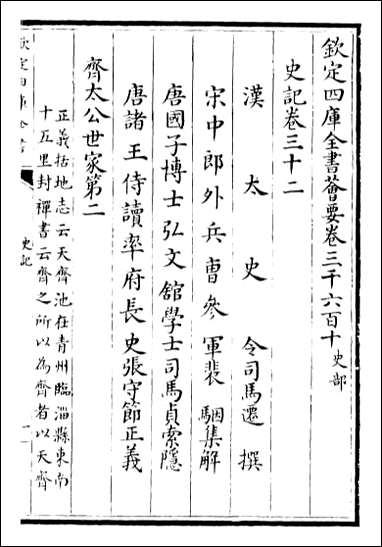 欽定四庫全書薈要卷三千六百十史部
史記卷三十二
漢太史令司馬遷撰
宋中郎外兵曹參軍裴駰集解
唐國子博士弘文館學士司馬貞索隱
唐諸王侍讀率府長史張守節正義
齊太公世家第二
正義括地志云天齊池在青州臨淄縣東南
十五里封禪書云齊之所以為齊者以天齊
欽定四庫全書
史記